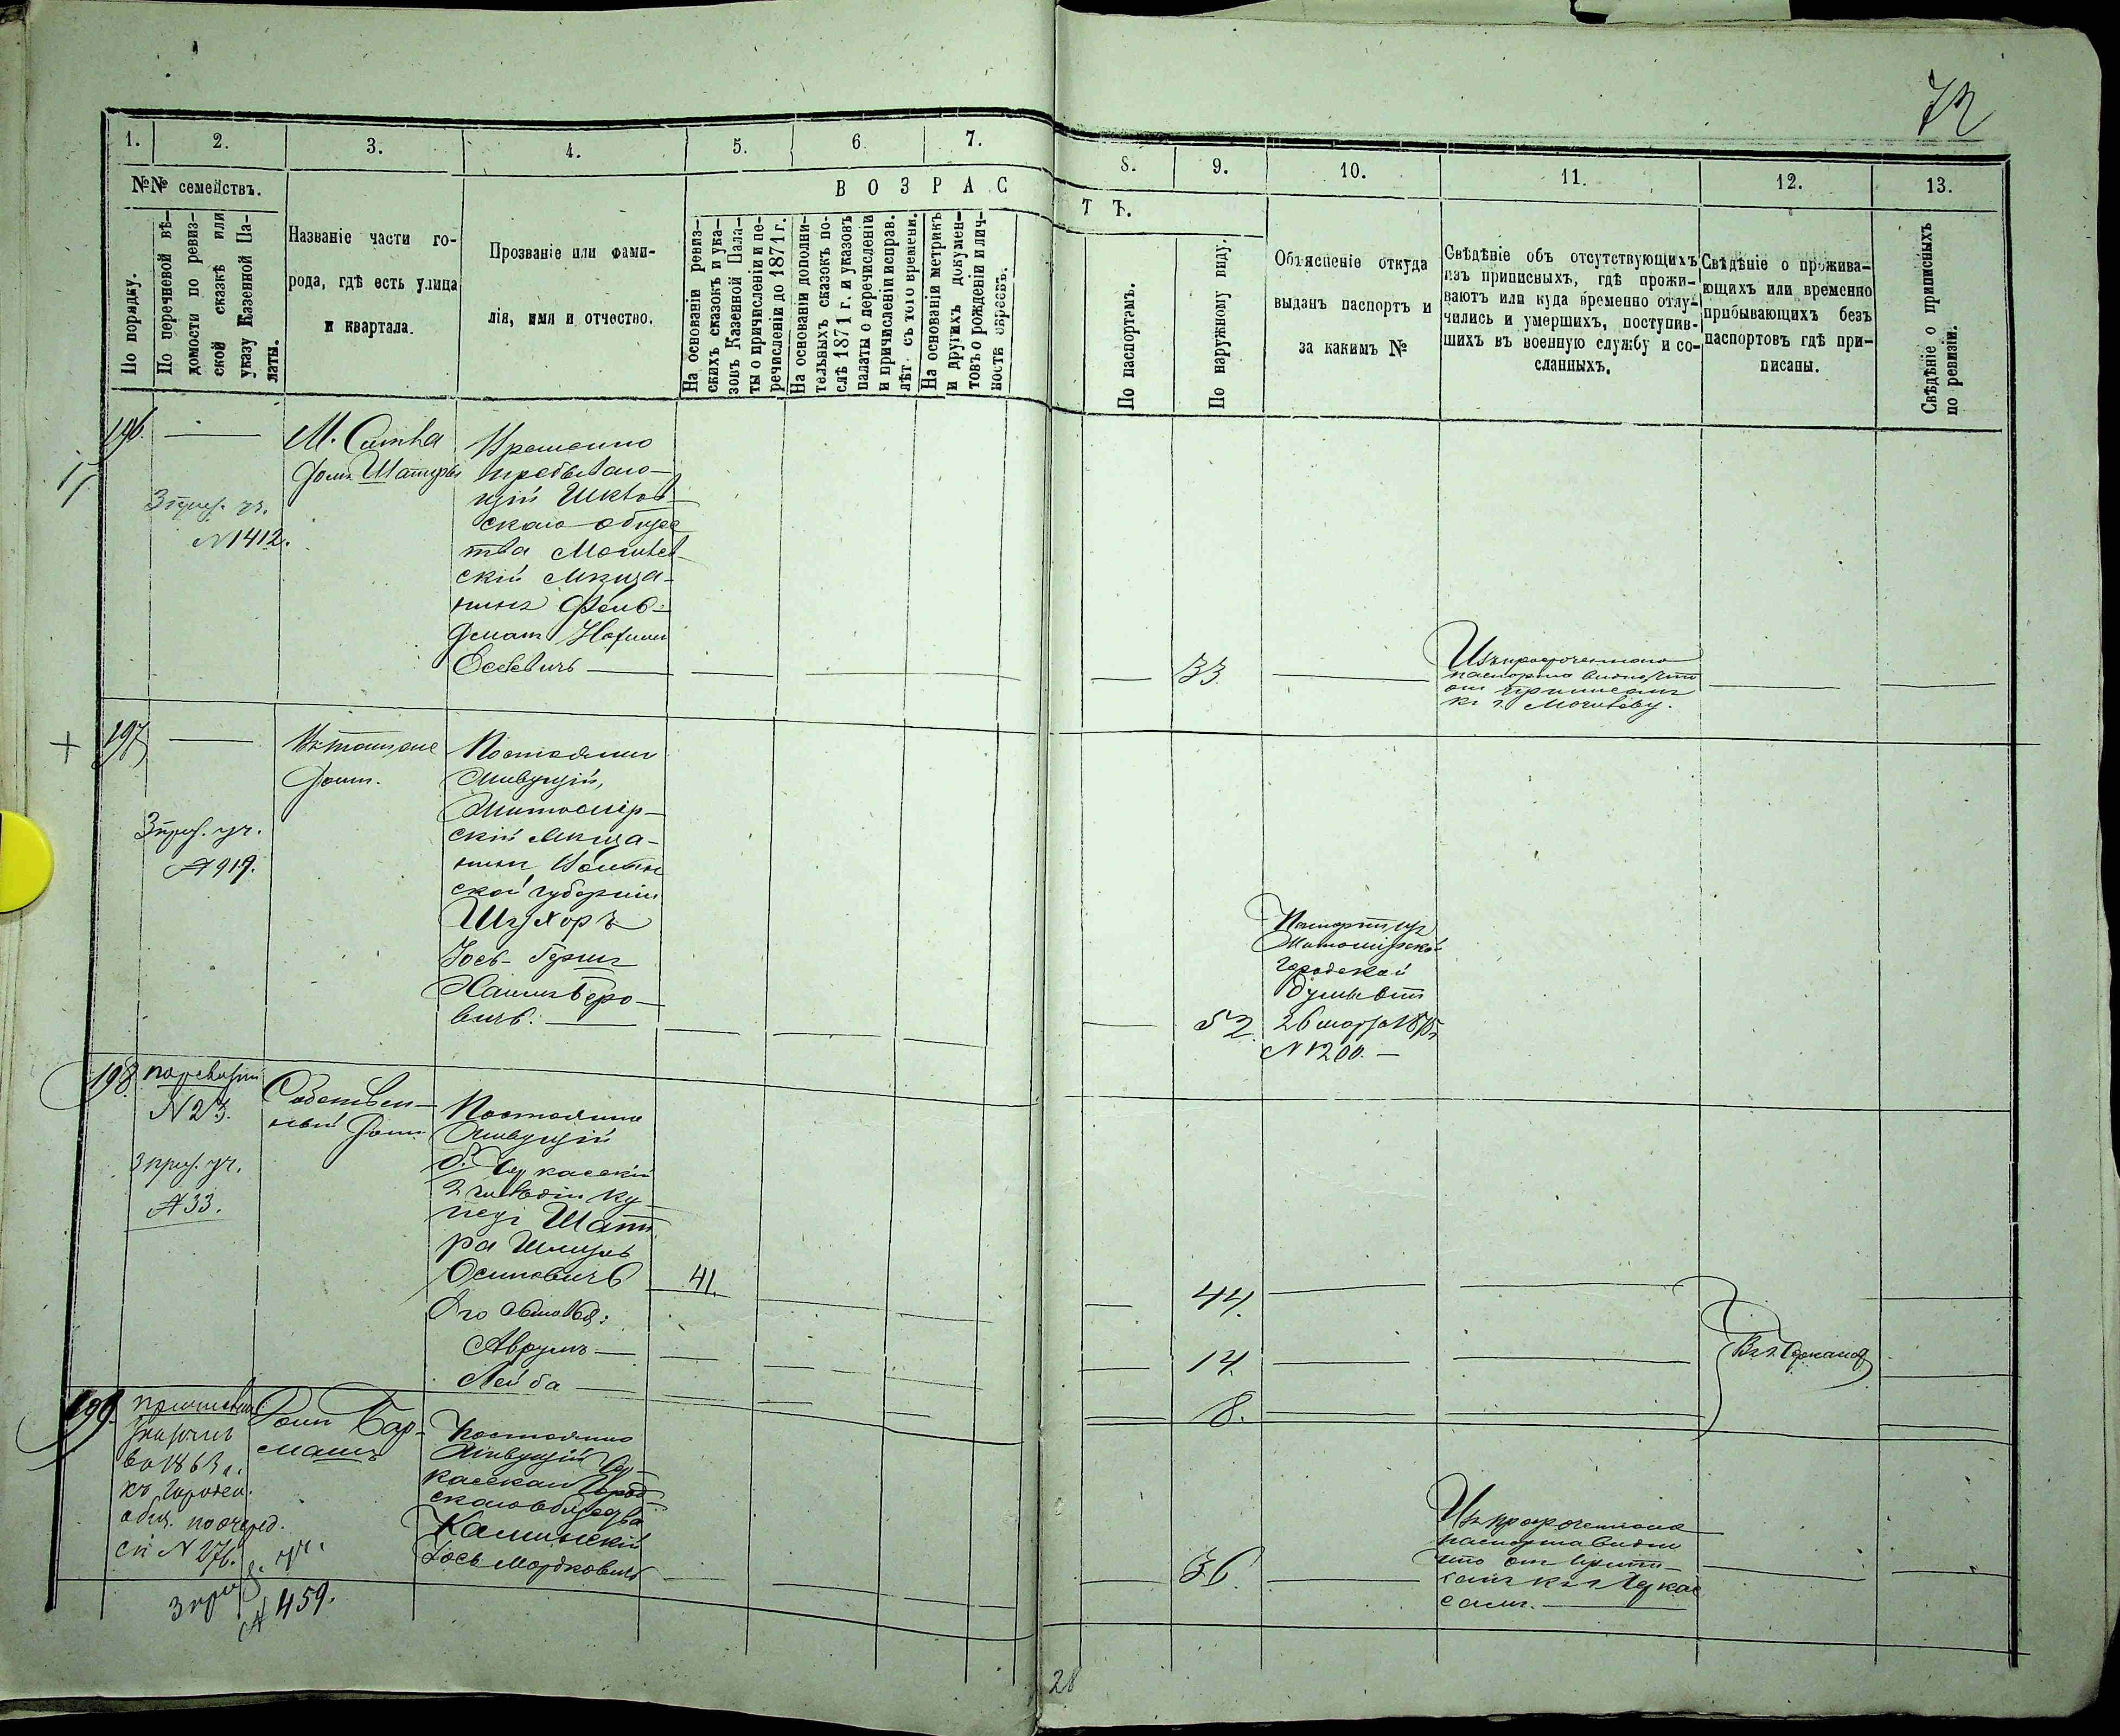 72
1. 2. 3. 4. 5. 6 7.
8. 9. 10. 11. 12. 13.
№№ семействъ.
По порядку.
По перечневой вѣ-
домости по ревиз-
ской сказкѣ или
указу Казенной Па-
латы.
Названіе части го-
рода, гдѣ есть улица
и квартала.
Прозваніе или фами-
лія, имя и отчество.
ВОЗРАС
ТЪ.
На основаніи ревиз-
скихъ сказокъ и ука-
зовъ Казенной Пала-
ты о причисленіи и пе-
речисленіи до 1871 г.
На основаніи дополни-
тельныхъ сказокъ по-
слѣ 1871 г. и указовъ
палаты о перечисленіи
и причисленіи исправ.
лѣт съ того времени.
На основаніи метрикъ
и другихъ докумен-
товъ о рожденіи и лич-
ности евреевъ.
По паспортамъ.
По наружному виду.
Объясненіе откуда
выданъ паспортъ и
за какимъ №
Свѣдѣніе объ отсутствующихъ
изъ приписныхъ, гдѣ прожи-
ваютъ или куда временно отлу-
чились и умершихъ, поступив-
шихъ въ военную службу и со-
сланныхъ.
Свѣдѣніе о прожива-
ющихъ или временно
прибывающихъ безъ
паспортовъ гдѣ при-
писаны.
Свѣдѣніе о приписныхъ
по ревизіи.
196.
3 приз. уч.
№ 1412.
домъ Шапиры
Временно
пребываю-
щій Шклов-
скаго общес
тва Могилев-
скій мѣща-
нинъ
33.
Изъ просроченнаго
паспорта видно, что
онъ приписанъ
къ г. Могилеву.
197
3 приз. уч.
№ 919.
Въ томъ же
домѣ.
Постоянно
живущій,
Житомір-
скій мѣща-
нинъ Волын
ской губерніи
Шухоръ
Іось-Гершъ
52.
Паспортъ изъ
Житомірской
городской
думы отъ
26 марта
№ 1200. —
198.
по ревизіи
№ 23.
3 приз. уч.
№ 33.
Собствен-
ный домъ
Постоянно
живущій
2 гильдіи ку
пецъ Шапи
ра
Осиповичъ 41. 44.
Его сыновья:
Аврумъ — 14.
Лейба — 8.
Въ г. Черкасах
199.
въ 1863 г.
къ городск.
общ. по очеред.
сп № 276.
3 приз. уч.
№ 459.
Домъ Бар-
машъ
Постоянно
живущій Чер-
касскаго город-
скаго общества
Каминскій
Іось Мордковичъ
36.
Изъ просроченнаго
паспорта видно
что онъ припи-
санъ къ г. Черкас
самъ.
28